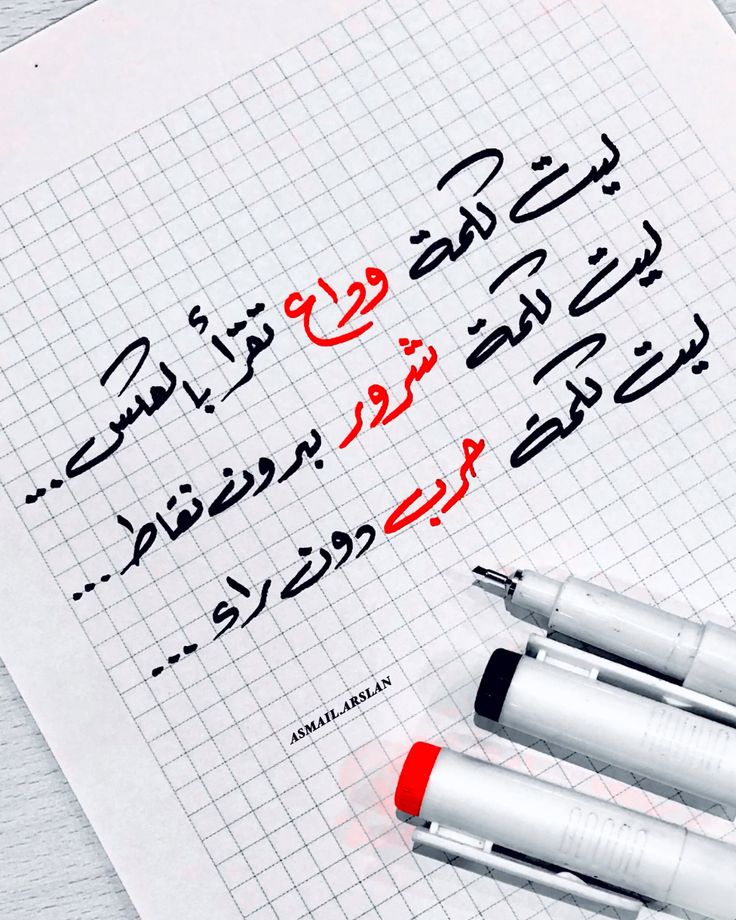 ليت كلمة وداع تقرأ بالعكس...
ليت كلمة شرور بدون نقاط...
ليت كلمة حرب دون راء...
ASMAIL.ARSLAN